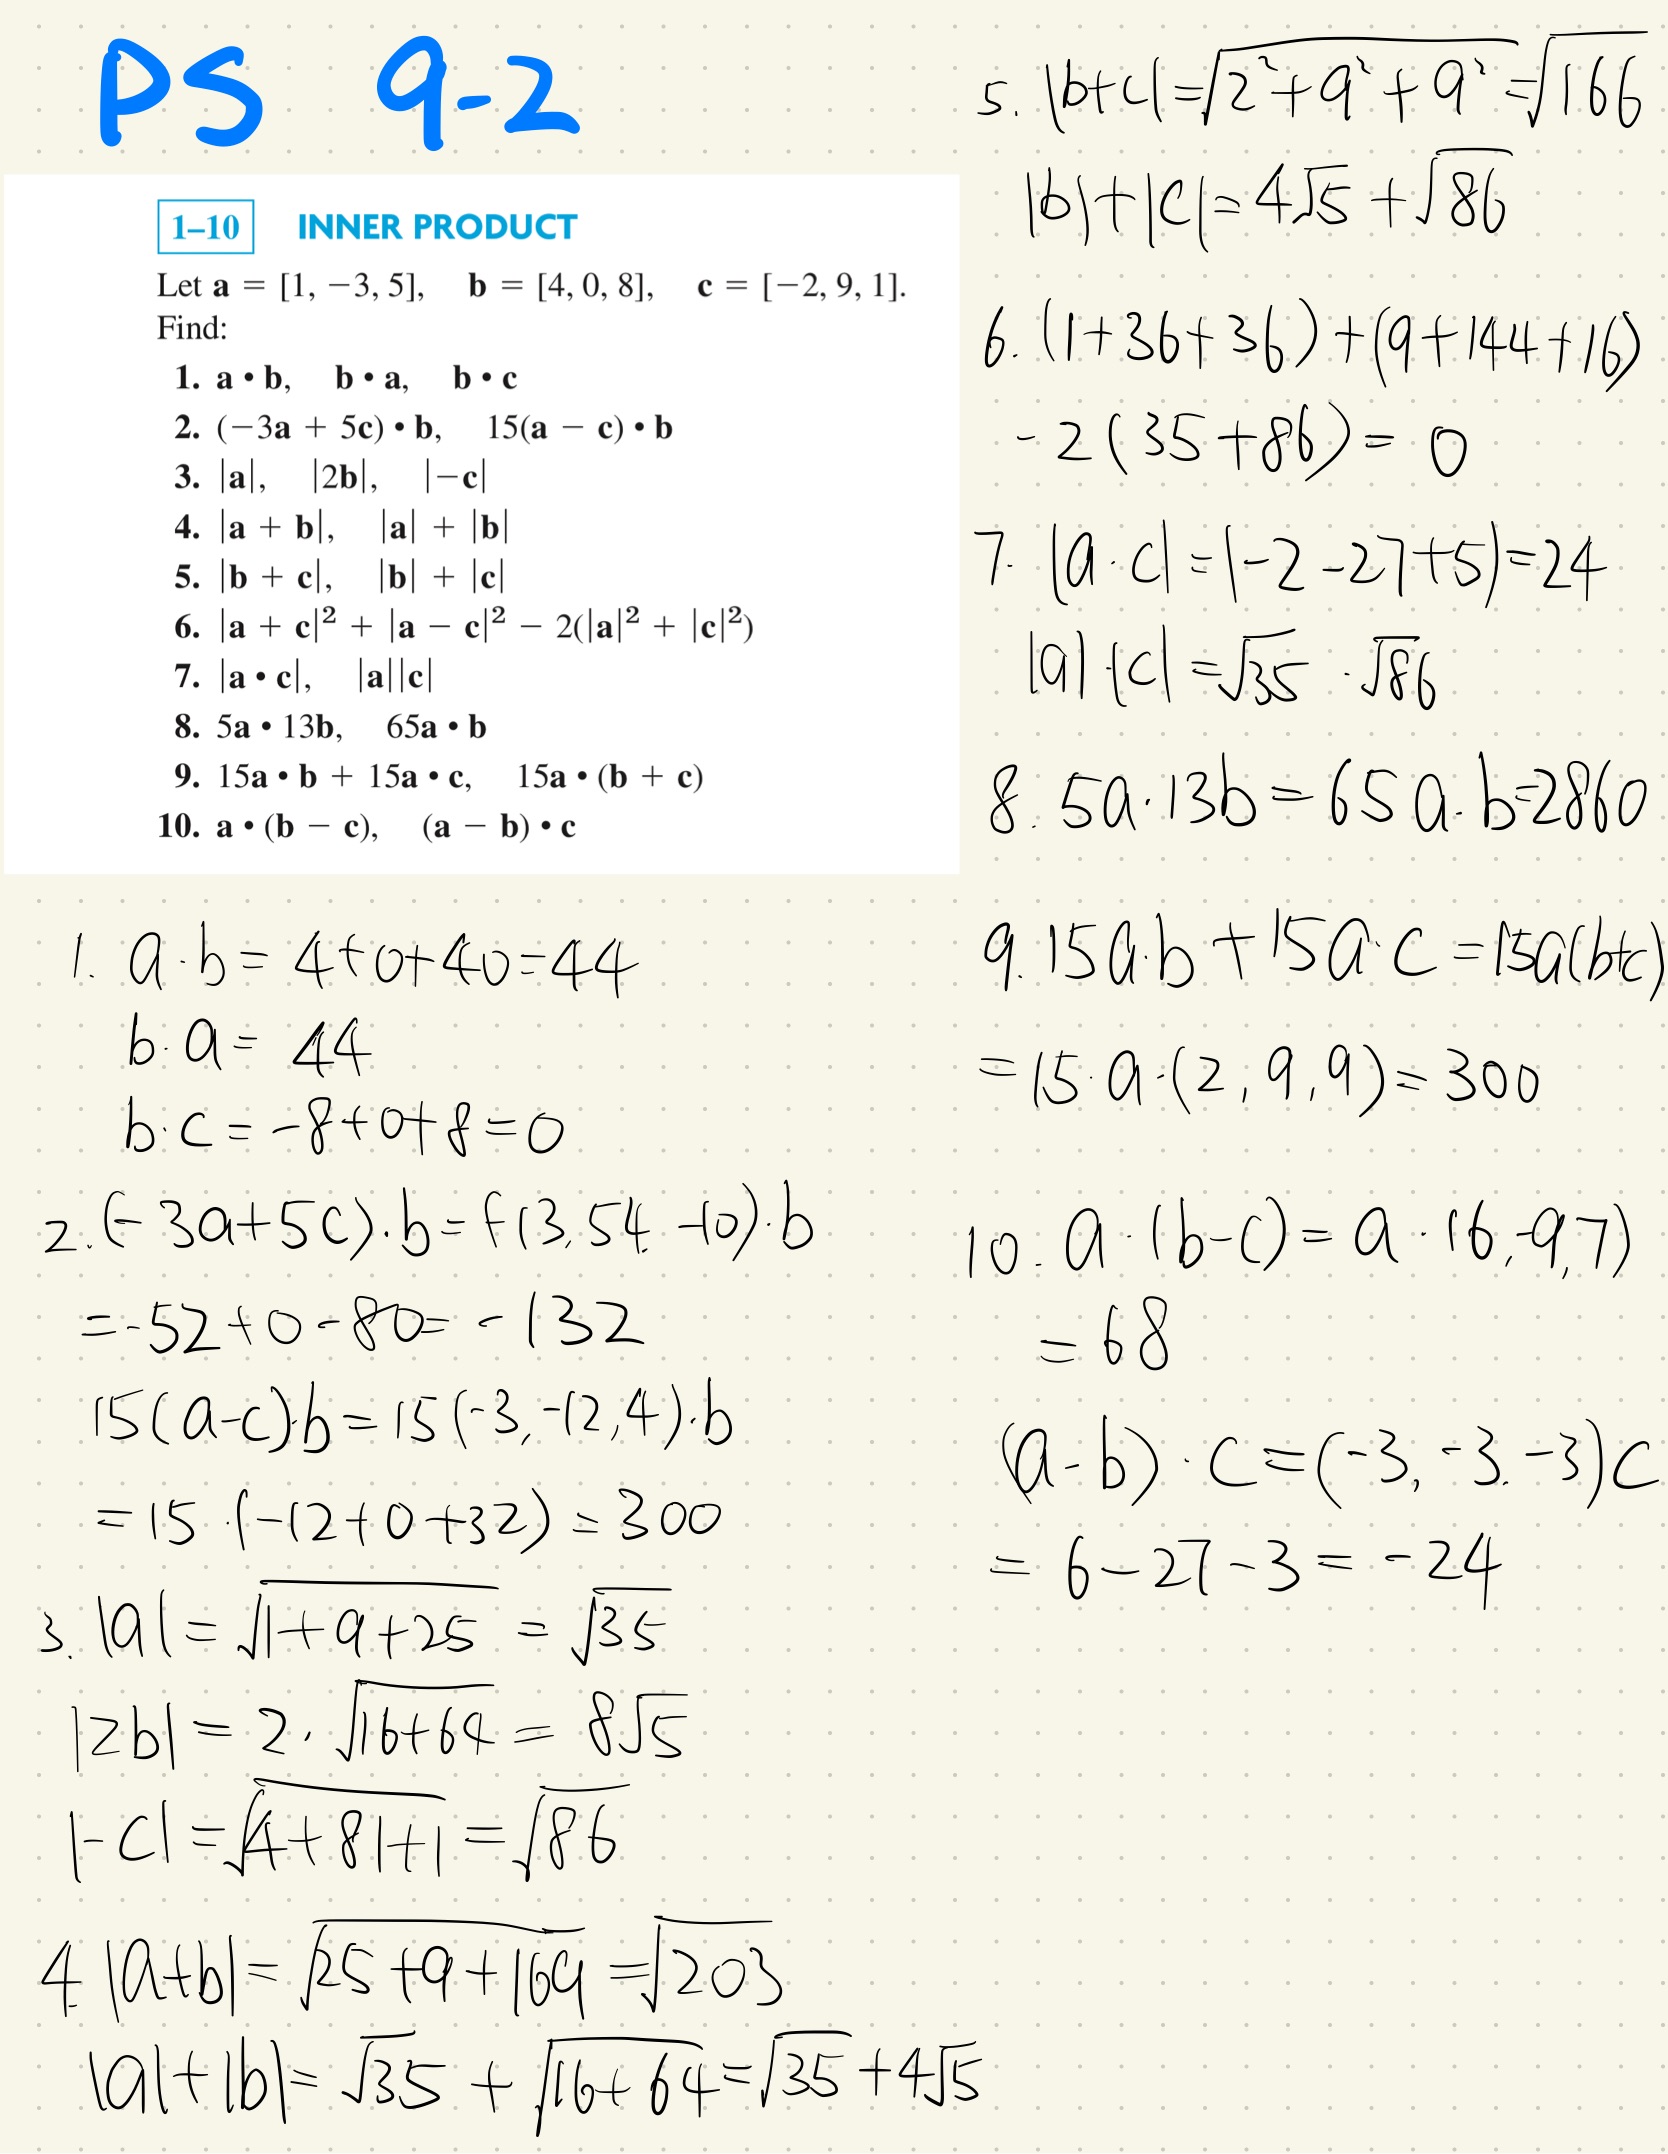 PS 9-2
1–10 INNER PRODUCT
Let a = [1, −3, 5], b = [4, 0, 8], c = [−2, 9, 1].
Find:
1. a • b, b • a, b • c
2. (−3a + 5c) • b, 15(a − c) • b
3. |a|, |2b|, |−c|
4. |a + b|, |a| + |b|
5. |b + c|, |b| + |c|
6. |a + c|² + |a − c|² − 2(|a|² + |c|²)
7. |a • c|, |a||c|
8. 5a • 13b, 65a • b
9. 15a • b + 15a • c, 15a • (b + c)
10. a • (b − c), (a − b) • c
1. a·b = 4+0+40=44
b·a = 44
b·c = -8+0+8=0
2. (-3a+5c)·b = (-13, 54, -10)·b
= -52+0-80= -132
15(a-c)·b = 15(-3,-12,4)·b
= 15·(-12+0+32) = 300
3. |a| = √1+9+25 = √35
|2b| = 2·√16+64 = 8√5
|-c| = √4+81+1 = √86
4. |a+b| = √25+9+169 = √203
|a|+|b| = √35 + √16+64 = √35 + 4√5
5. |b+c| = √2²+9²+9² = √166
|b|+|c| = 4√5 + √86
6. (1+36+36)+(9+144+16)
-2(35+86) = 0
7. |a·c| = |-2-27+5| = 24
|a|·|c| = √35 · √86
8. 5a·13b = 65a·b=2860
9. 15a·b + 15a·c = 15a(b+c)
= 15·a·(2,9,9) = 300
10. a·(b-c) = a·(6,-9,7)
= 68
(a-b)·c = (-3,-3,-3)c
= 6-27-3 = -24